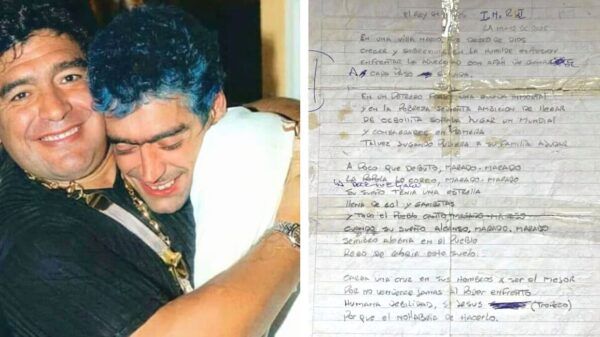 EL REY
LA MANO DE DIOS
EN UNA VILLA NACIO, FUE DESEO DE DIOS
CRECER Y SOBREVIVIR EN LA HUMILDE EXPRESION
ENFRENTAR LA ADVERSIDAD CON AFAN DE GANARSE
A CADA PASO LA VIDA.
EN UN POTRERO FORJO UNA ZURDA INMORTAL
Y CON LA POBREZA SEDIENTA AMBICION DE LLEGAR
DE CEBOLLITA SOÑABA JUGAR UN MUNDIAL
Y CONSAGRARSE EN PRIMERA
TALVEZ JUGANDO PUDIERA A SU FAMILIA AYUDAR
A POCO QUE DEBUTO, MARADO, MARADO
LA COREO, MARADO, MARADO
SU SUEÑO TENIA UNA ESTRELLA
LLENA DE GOL Y GAMBETAS
Y TODO EL PUEBLO CANTO, MARADO, MARADO
SU SUEÑO MARADO, MARADO
SEMBRO ALEGRIA EN EL PUEBLO
REGO DE GLORIA ESTE SUELO.
CARGA UNA CRUZ EN SUS HOMBROS X SER EL MEJOR
POR NO VENDERSE JAMAS AL PODER ENFRENTO
HUMANA DEBILIDAD, SI JESUS (TROPEZO)
POR QUE EL NO HABRIA DE HACERLO.